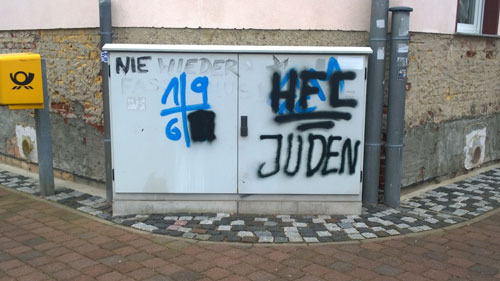 NIE WIEDER
19
6
HFC
JUDEN